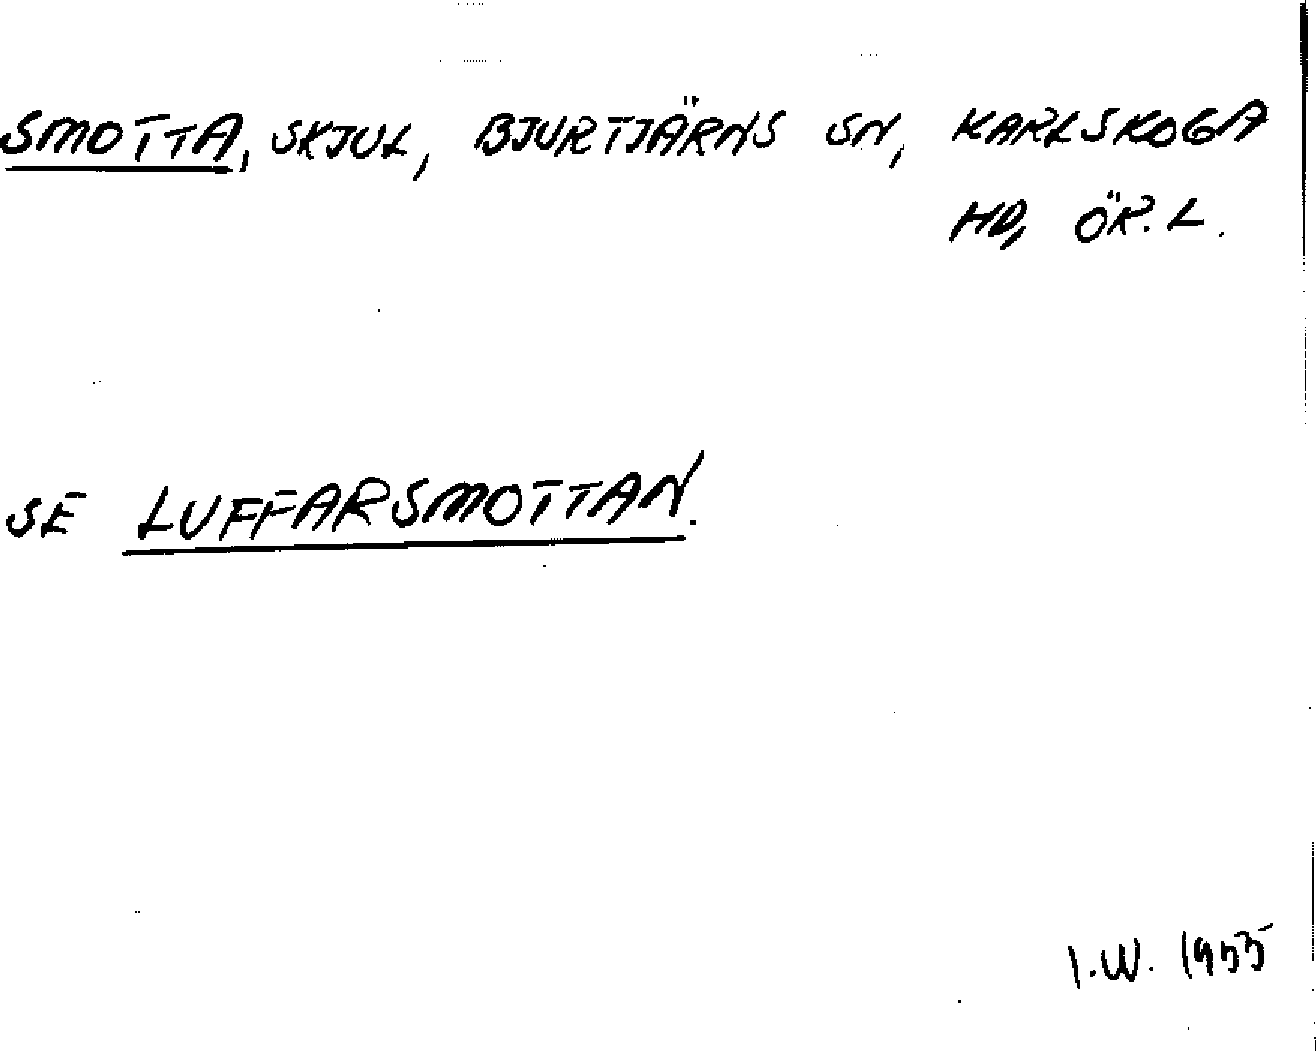 SMOTTA, SKJUL, BJURTJÄRNS SN, KARLSKOGA
HD, ÖR.L.
SE LUFFARSMOTTAN.
I.W. 1955